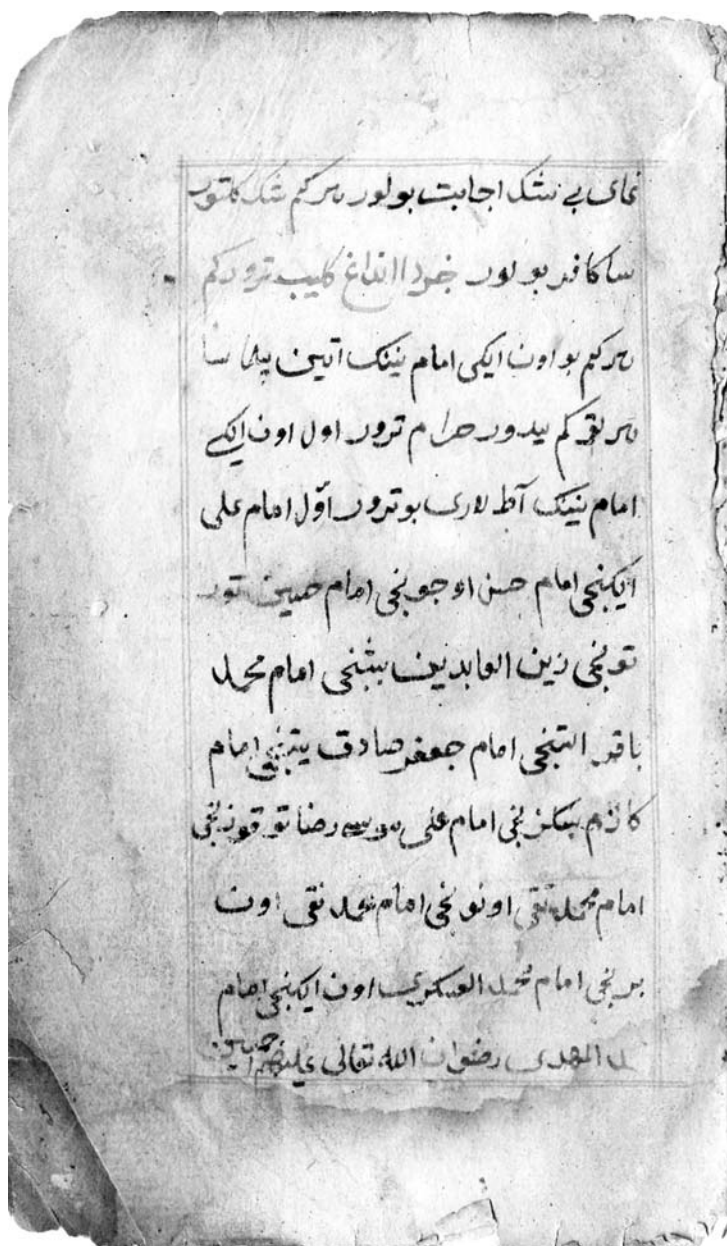 عای بی شک اجابت بولور هر کم شک کلتور
سا کافر بولور خدا انداغ کلیب ترور کم
هر کم بو اون ایکی امام نینک اتین بیلماسا
هر نقی کم ییدور حرام ترور اول اون ایکی
امام نینک آط لاری بو ترور اوّل امام علی
ایکنجی امام حسن اوجونجی امام حسین تور
تونجی زین العابدین بیشنجی امام محمد
باقر التینجی امام جعفر صادق یتینجی امام
کاذم سکزنجی امام علی موسی رضا توقوزنجی
امام محمد تقی اونونجی امام محمد نقی اون
برنجی امام محمد العسکری اون ایکنجی امام
المهدی رضوان الله تعالی علیهم اجمعین